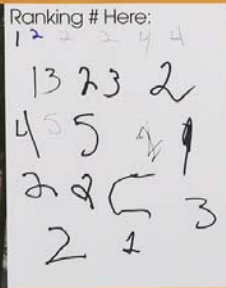 Ranking # Here:
1 2 2 2 4 4
13 23 2
4 5 5 1
2 2 3
2 1